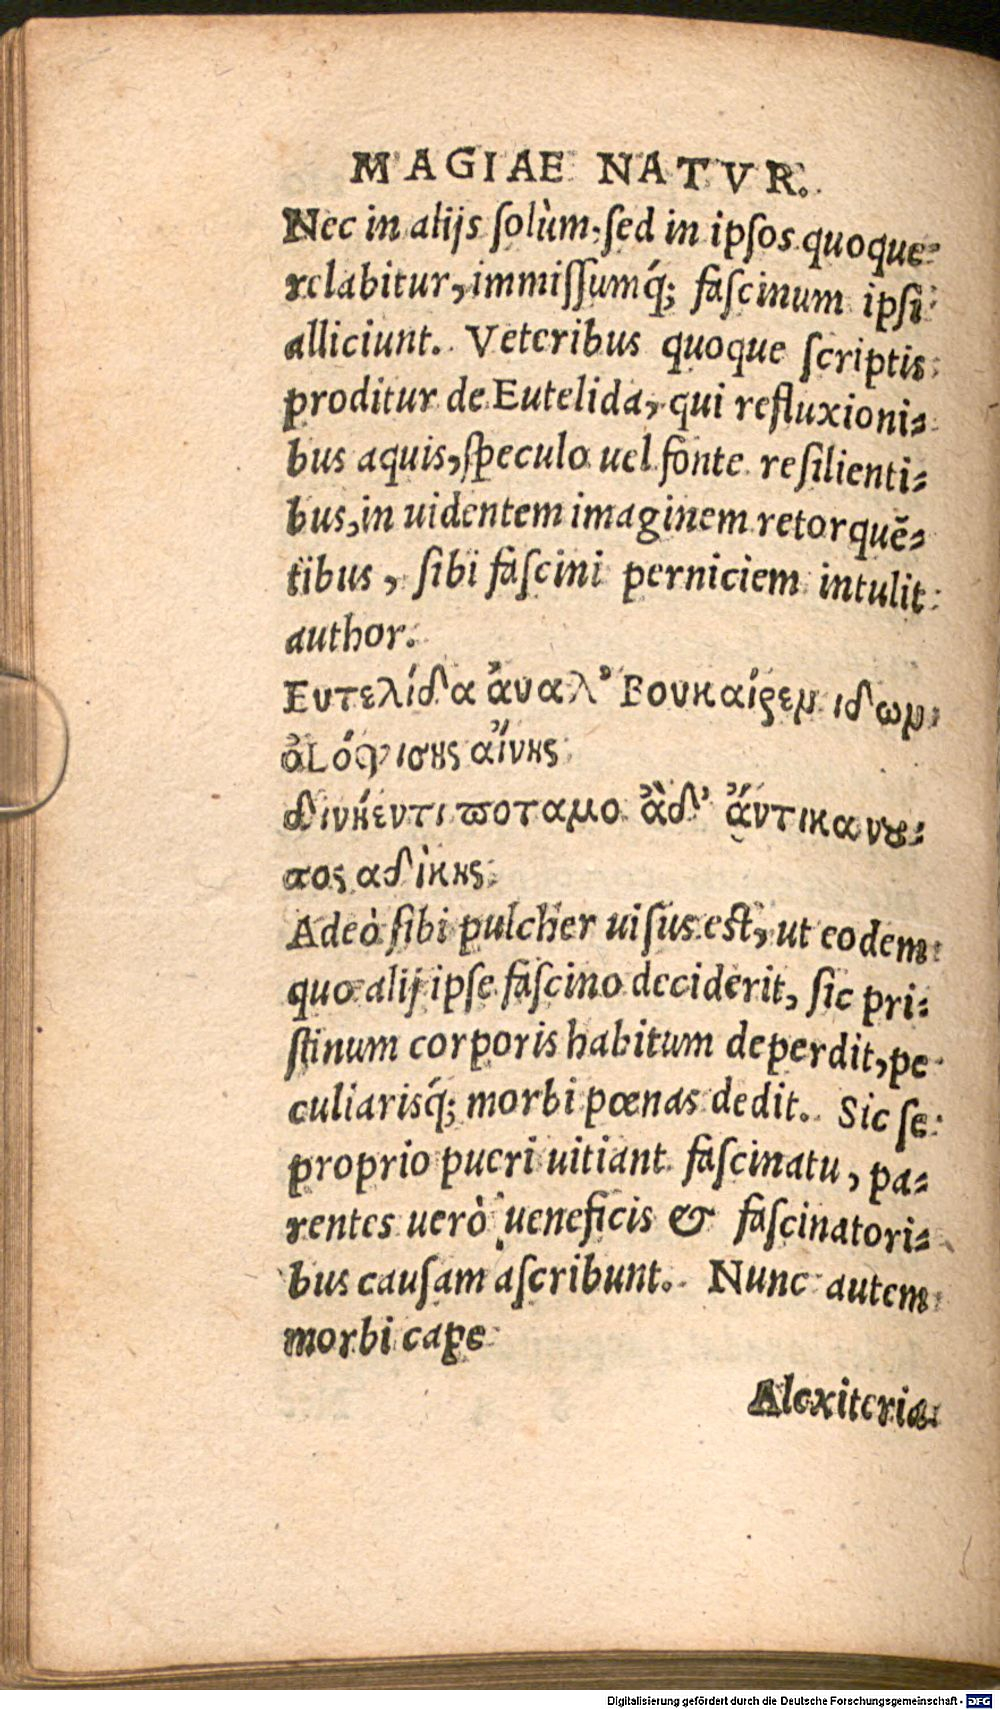 MAGIAE NATVR.
Nec in alijs ſolùm, ſed in ipſos quoque
relabitur, immiſſumq́; faſcinum ipſi
alliciunt. Veteribus quoque ſcriptis
proditur de Eutelida, qui refluxioni-
bus aquis, ſpeculo uel fonte reſilienti-
bus, in uidentem imaginem retorquē-
tibus, ſibi faſcini perniciem intulit
author.
Ευτελίδα ἄυαλ' Βουκαίρεμ ιδωμ
αἴνης
δινήεντι ποταμο ἂδ'
αδίκης
Adeò ſibi pulcher uiſus eſt, ut eodem
quo alij ipſe faſcino deciderit, ſic pri-
ſtinum corporis habitum deperdit, pe
culiarisq́; morbi pœnas dedit. Sic ſe
proprio pueri uitiant faſcinatu, pa-
rentes uerò ueneficis & faſcinatori-
bus cauſam aſcribunt. Nunc autem
morbi cape
Alexiteria
Digitalisierung gefördert durch die Deutsche Forschungsgemeinschaft - DFG